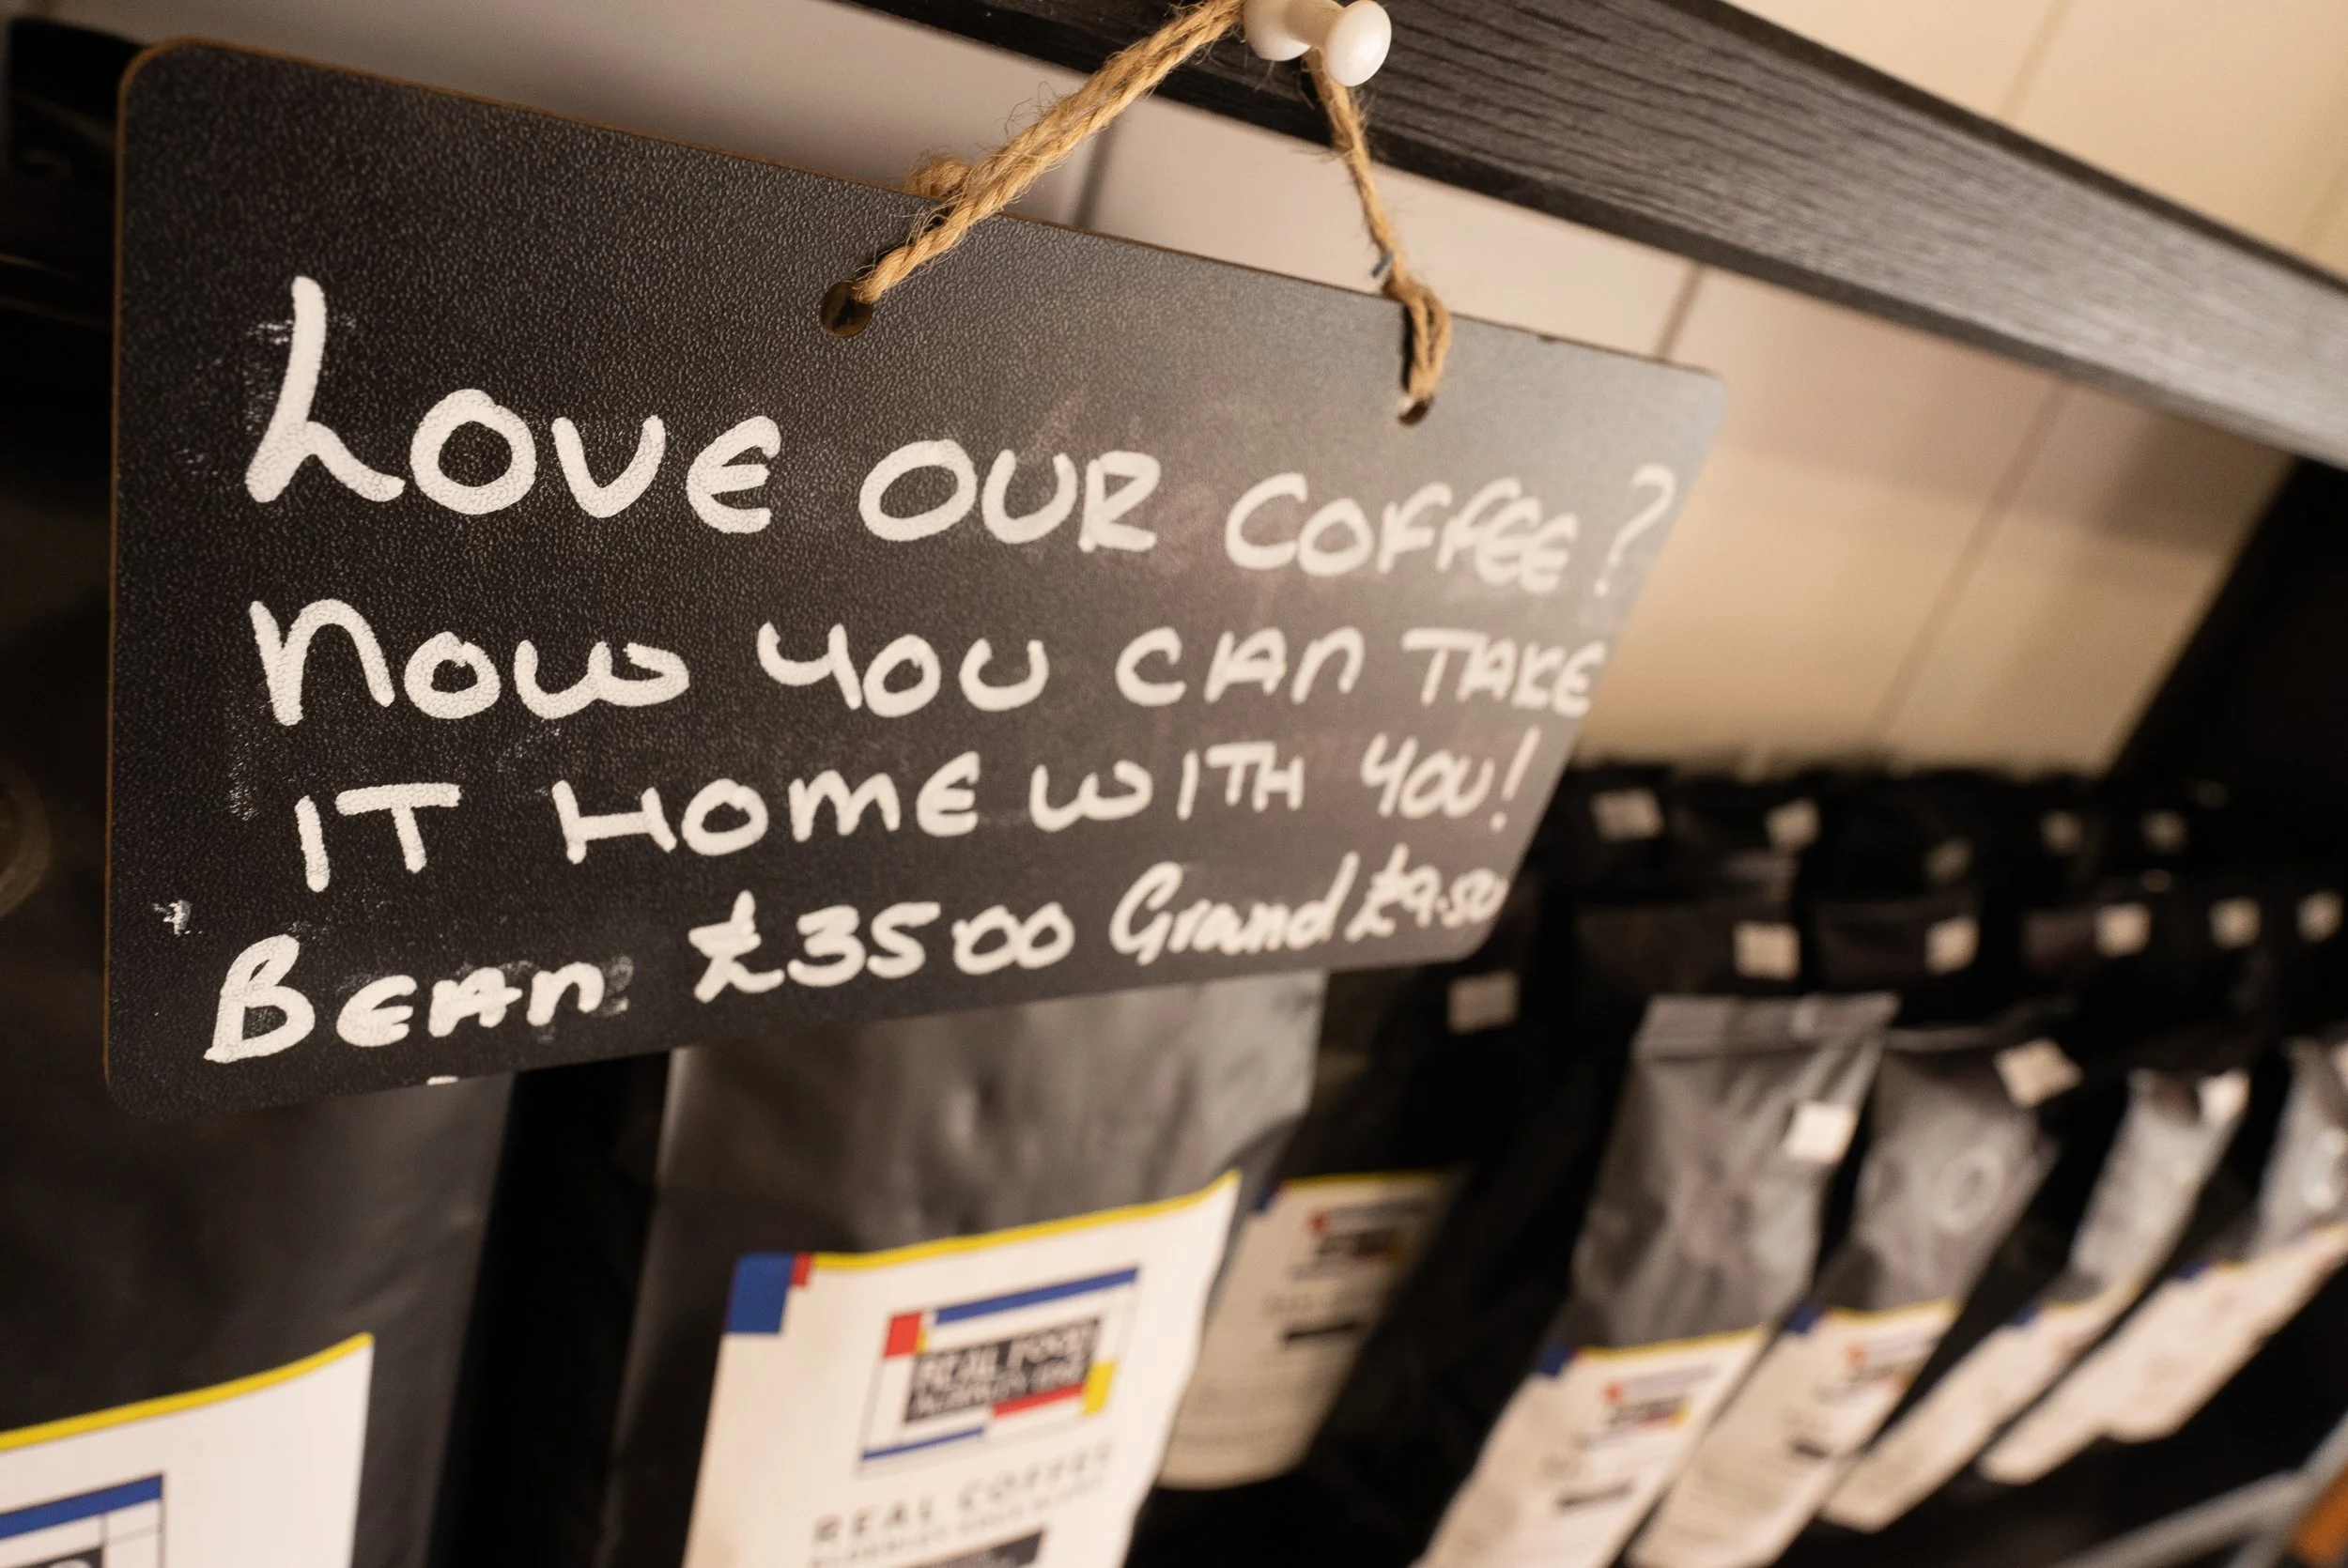 LOVE OUR COFFEE?
NOW YOU CAN TAKE
IT HOME WITH YOU!
BEAN £35.00 Grand £9.50
REAL FOOD
REAL COFFEE